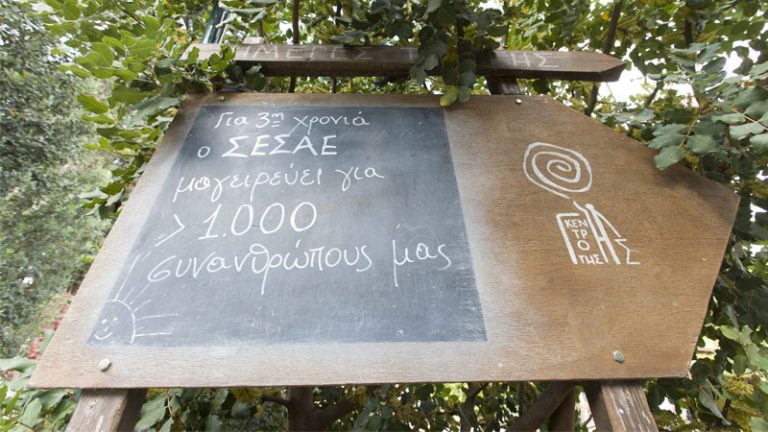 ΗΜΕΡΕΣ ΓΗΣ
Για 3η χρονιά
ο ΣΕΣΑΕ
μαγειρεύει για
> 1.000
συνανθρώπους μας
ΚΕΝ
ΤΡ
Ο
ΓΗΣ
ΤΗΣ